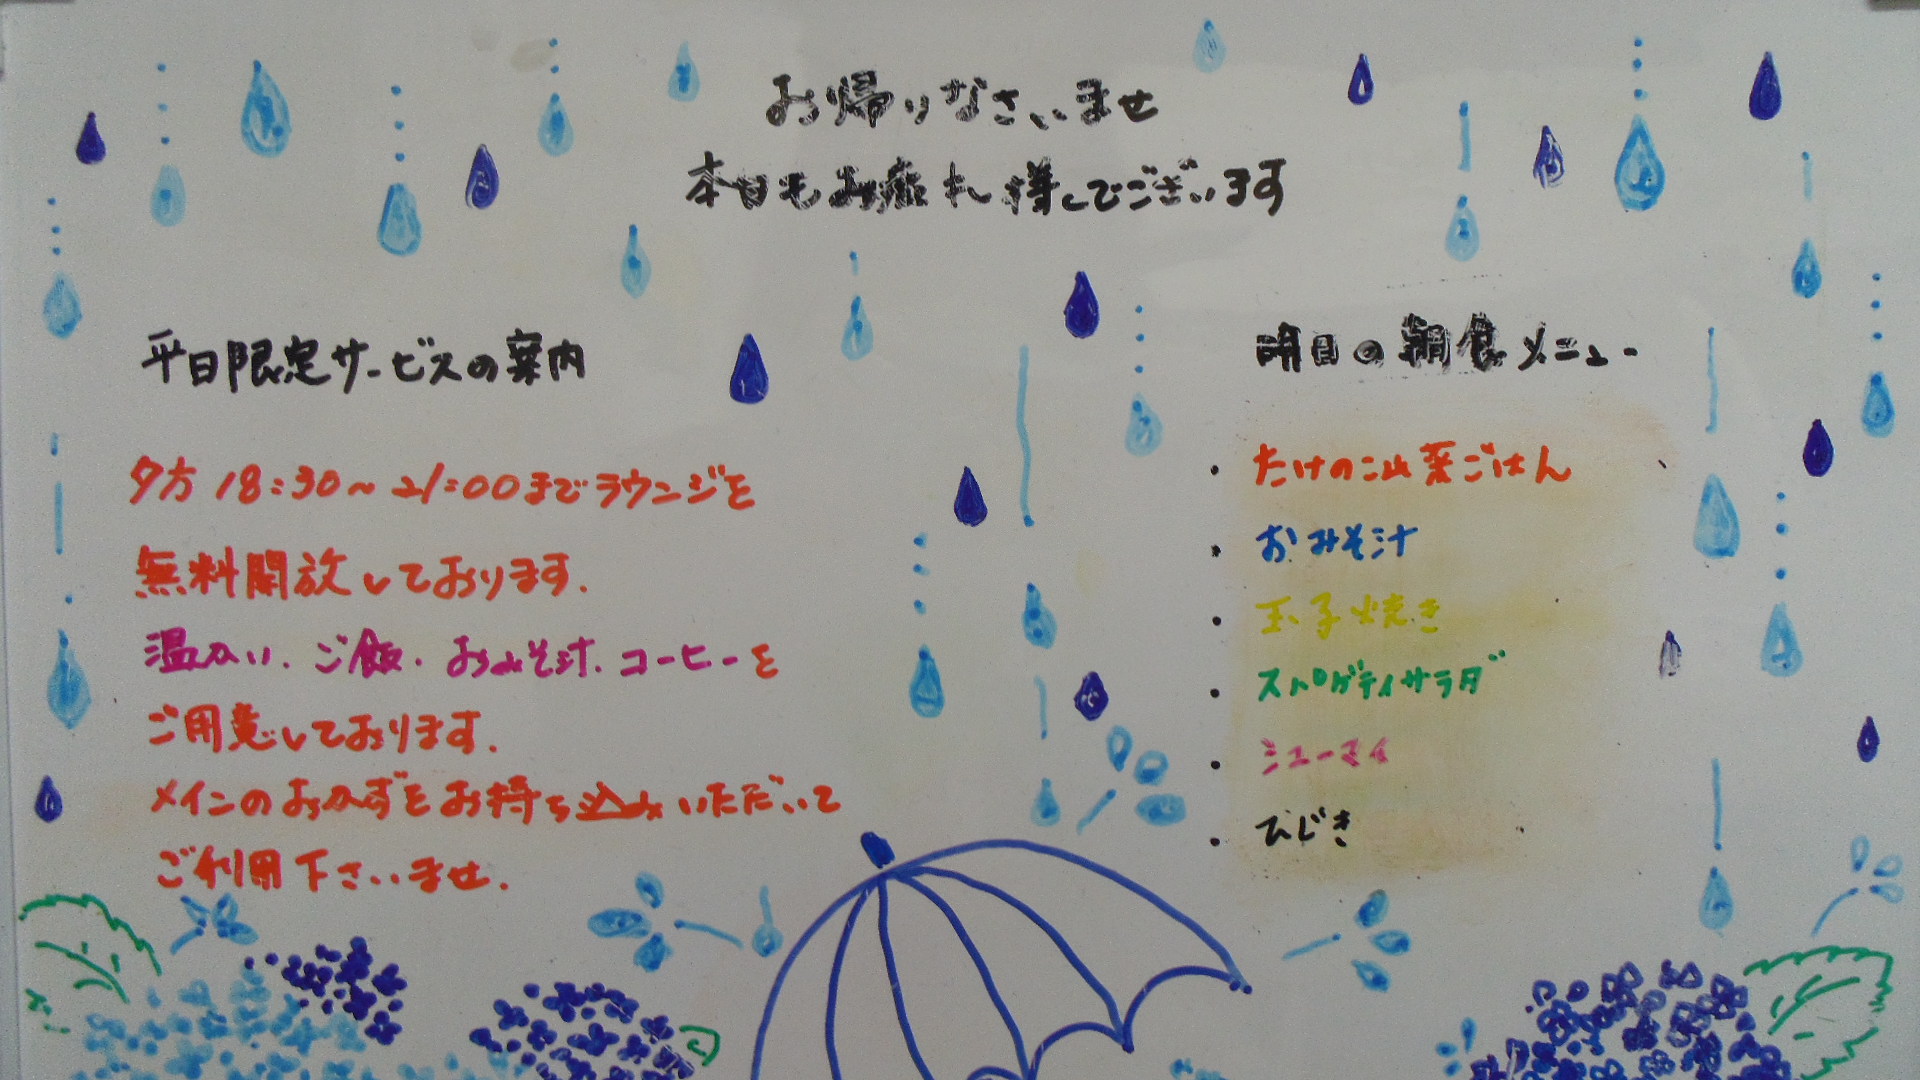 お帰りなさいませ
本日もお疲れ様でございます
平日限定サービスの案内
夕方 18:30～21:00までラウンジを
無料開放しております.
温かい.ご飯.おみそ汁.コーヒーを
ご用意しております.
メインのおかずをお持ち込みいただいて
ご利用下さいませ.
明日の朝食メニュー
・たけのこ山菜ごはん
・おみそ汁
・玉子焼き
・スパゲティサラダ
・シューマイ
・ひじき